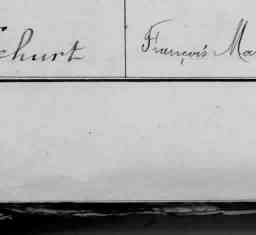 churt François Ma